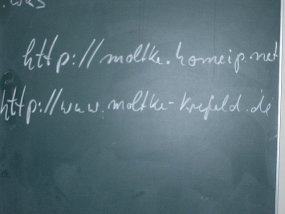 was
http://moltke.homeip.net
http://www.moltke-krefeld.de